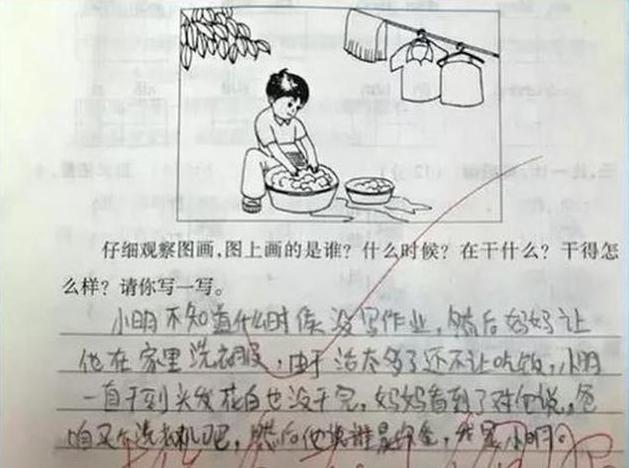 仔细观察图画,图上画的是谁?什么时候?在干什么?干得怎
么样?请你写一写。
小明不知道什么时候没写作业,然后妈妈让
他在家里洗衣服,由于活太多了还不让吃饭,小明
一直干到头发花白也没干完,妈妈看到了对他说,爸
咱买个洗衣机吧,然后他说谁是你爸,我是小明。